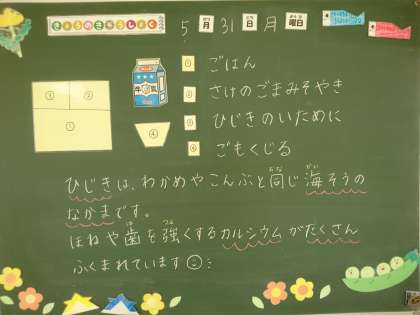 きょうのきゅうしょく
5月31日月曜日
① ごはん
② さけのごまみそやき
③ ひじきのいために
④ ごもくじる
① ②
③
④
牛乳
ひじきは、わかめやこんぶと同じ海そうの
なかまです。
ほねや歯を強くするカルシウムがたくさん
ふくまれています